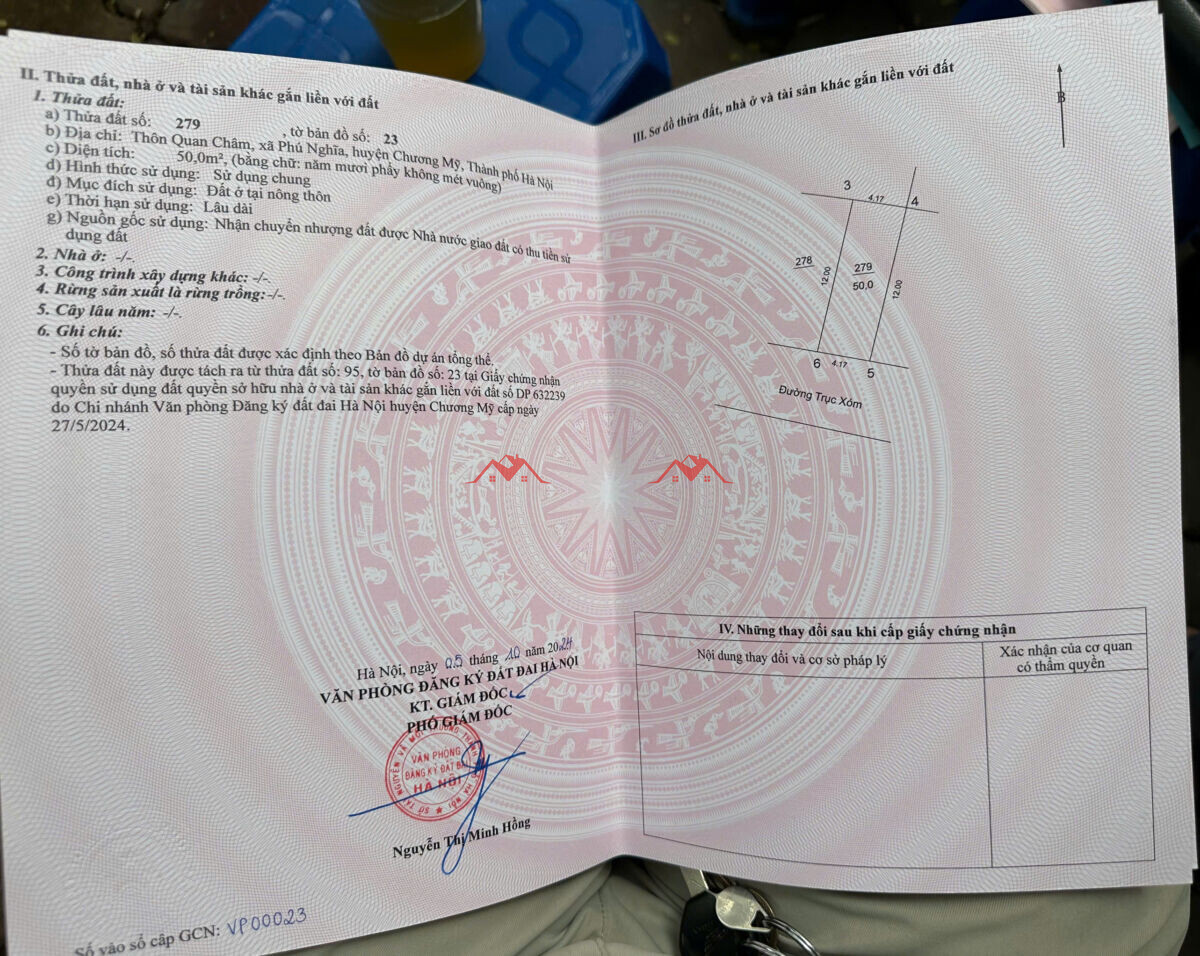 II. Thửa đất, nhà ở và tài sản khác gắn liền với đất
1. Thửa đất:
a) Thửa đất số: 279 , tờ bản đồ số: 23
b) Địa chỉ: Thôn Quan Châm, xã Phú Nghĩa, huyện Chương Mỹ, Thành phố Hà Nội
c) Diện tích: 50,0m², (bằng chữ: năm mươi phẩy không mét vuông)
d) Hình thức sử dụng: Sử dụng chung
đ) Mục đích sử dụng: Đất ở tại nông thôn
e) Thời hạn sử dụng: Lâu dài
g) Nguồn gốc sử dụng: Nhận chuyển nhượng đất được Nhà nước giao đất có thu tiền sử
dụng đất
2. Nhà ở: -/-.
3. Công trình xây dựng khác: -/-.
4. Rừng sản xuất là rừng trồng: -/-.
5. Cây lâu năm: -/-.
6. Ghi chú:
- Số tờ bản đồ, số thửa đất được xác định theo Bản đồ dự án tổng thể.
- Thửa đất này được tách ra từ thửa đất số: 95, tờ bản đồ số: 23 tại Giấy chứng nhận
quyền sử dụng đất quyền sở hữu nhà ở và tài sản khác gắn liền với đất số DP 632239
do Chi nhánh Văn phòng Đăng ký đất đai Hà Nội huyện Chương Mỹ cấp ngày
27/5/2024.
Hà Nội, ngày 05 tháng 10 năm 2024
VĂN PHÒNG ĐĂNG KÝ ĐẤT ĐAI HÀ NỘI
KT. GIÁM ĐỐC
PHÓ GIÁM ĐỐC
VĂN PHÒNG
ĐĂNG KÝ ĐẤT ĐAI
HÀ NỘI
Nguyễn Thị Minh Hồng
Số vào sổ cấp GCN: VP00023
III. Sơ đồ thửa đất, nhà ở và tài sản khác gắn liền với đất
B
3
4,17
4
278
12.00
279
50,0
12.00
6
4,17
5
Đường Trục Xóm
IV. Những thay đổi sau khi cấp giấy chứng nhận
Nội dung thay đổi và cơ sở pháp lý
Xác nhận của cơ quan
có thẩm quyền